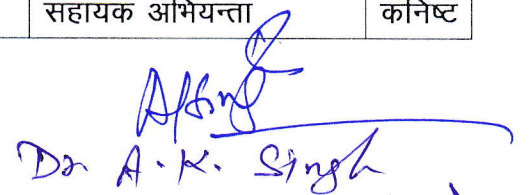 सहायक अभियन्ता कनिष्ट
Dr. A. K. Singh